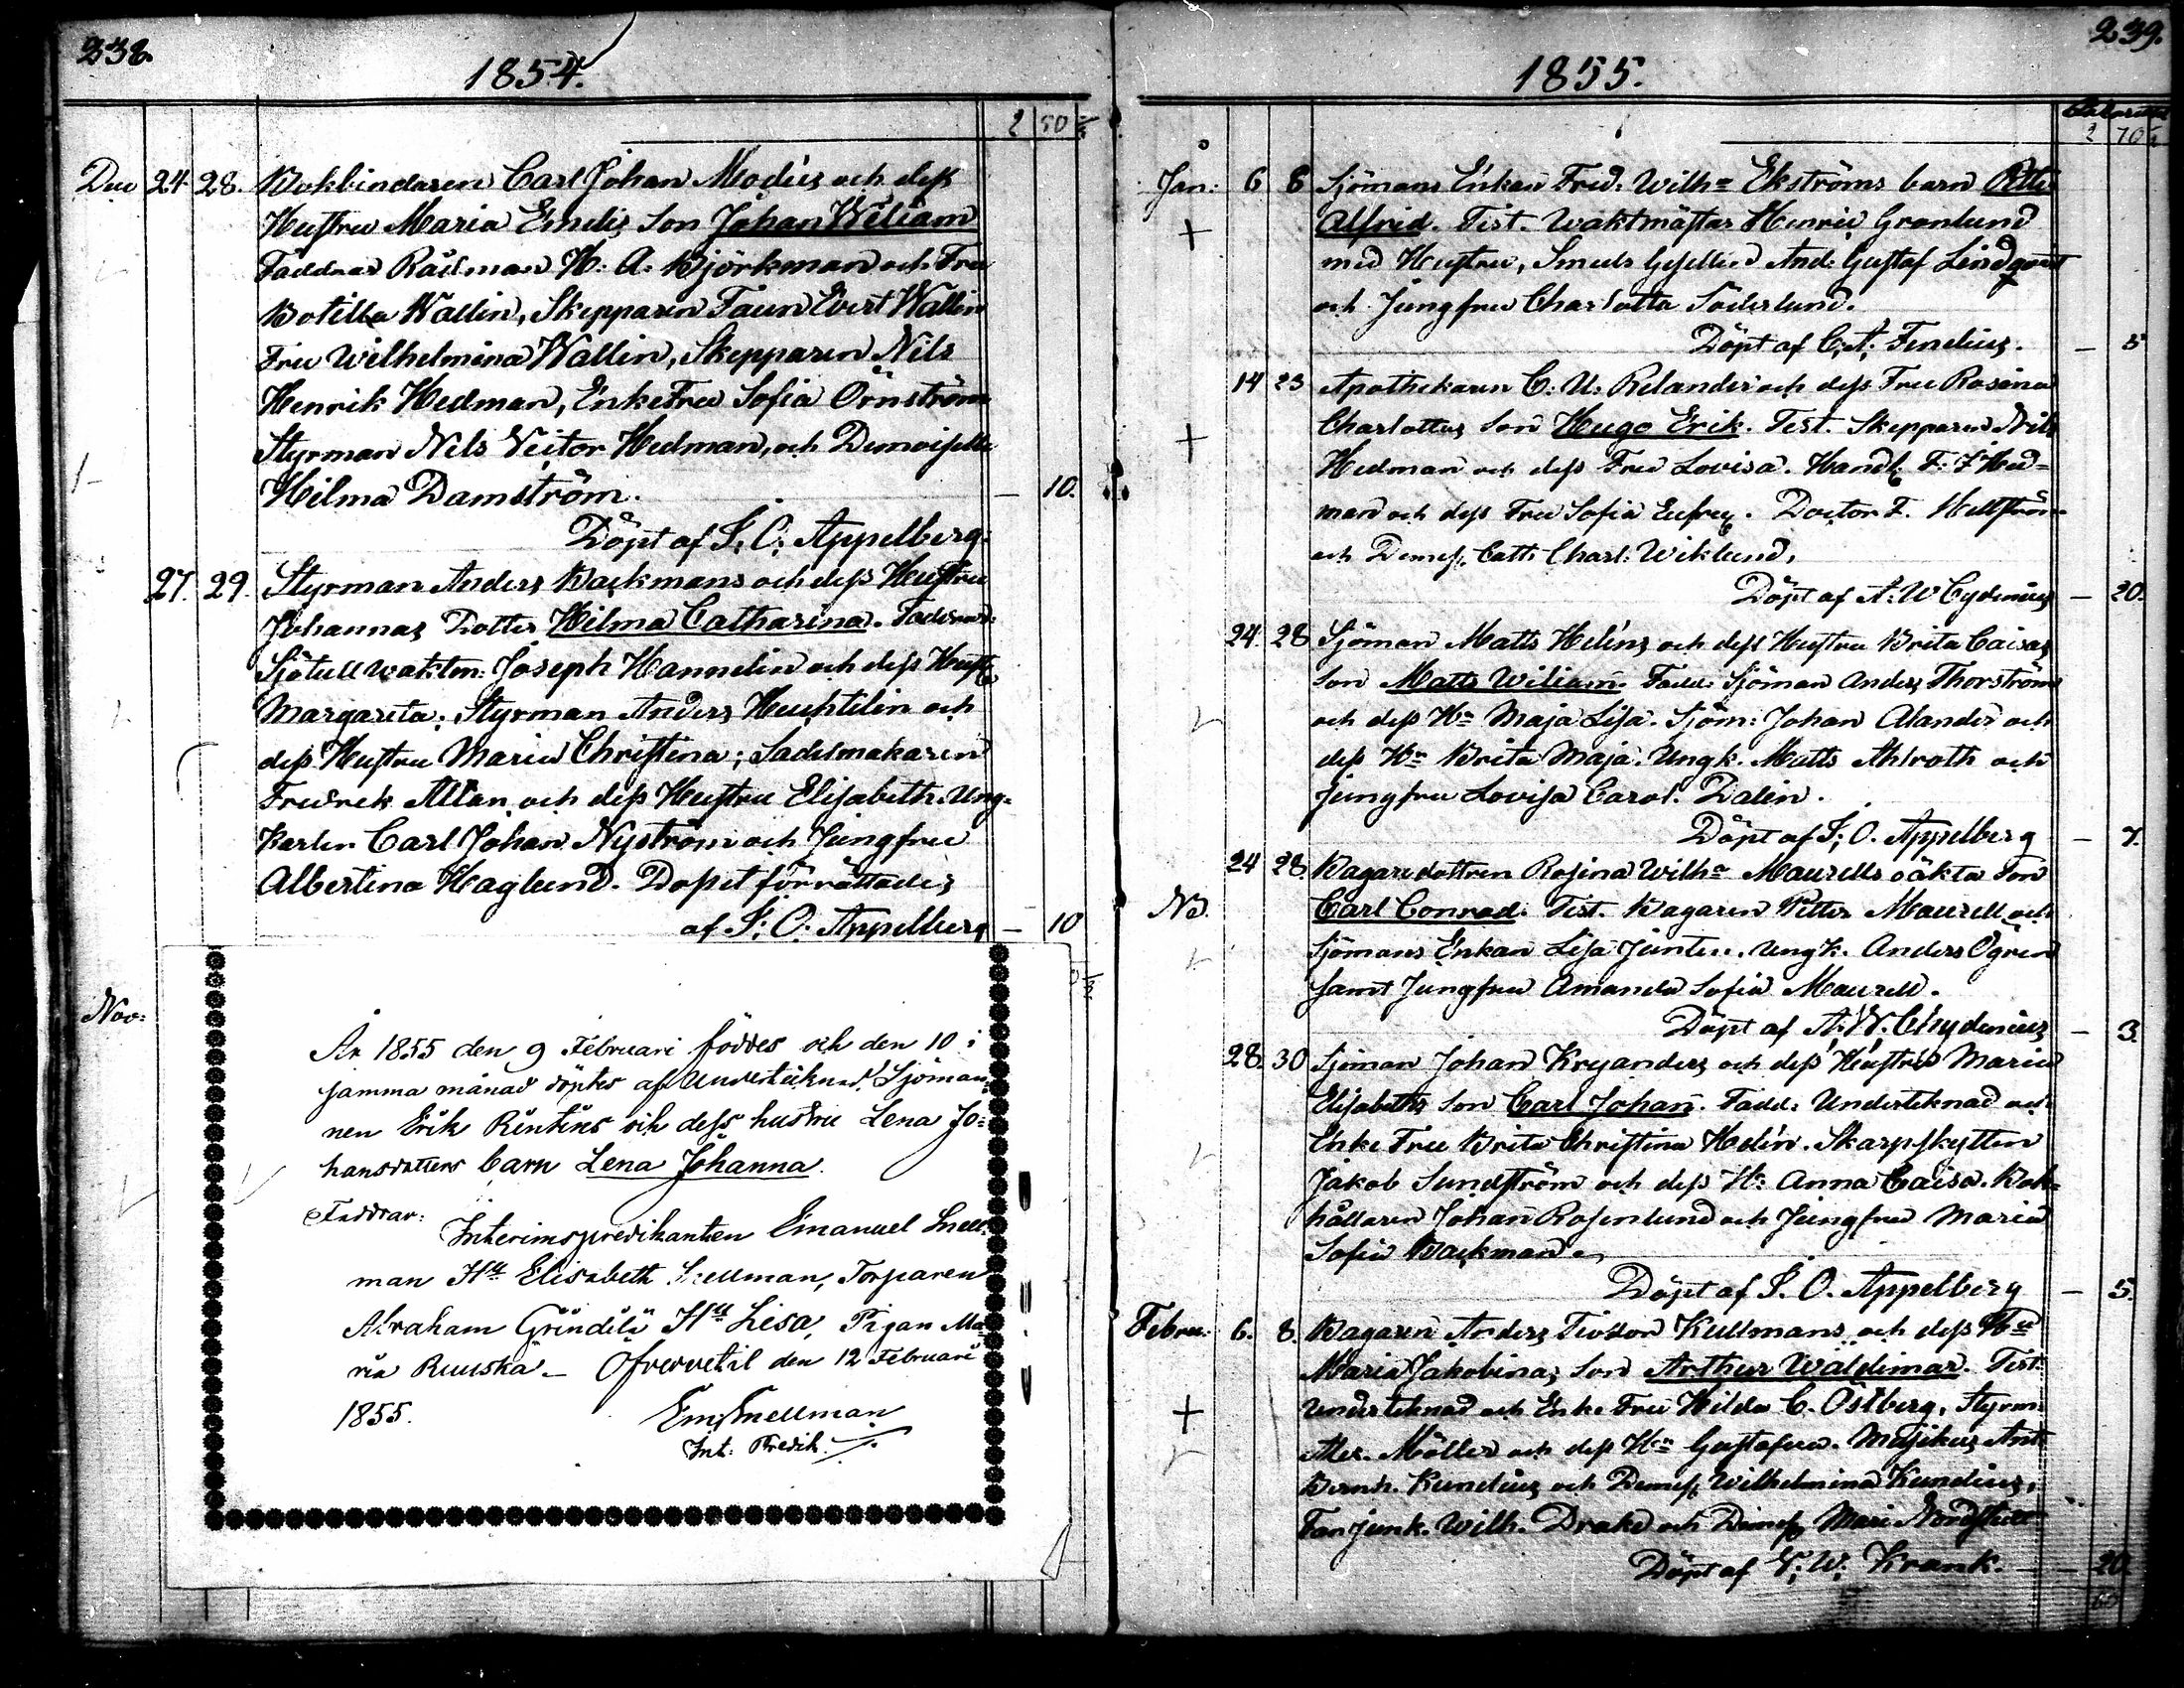 238.
1854.
2 50
Dec 24 28. Bokbindaren Carl Johan Modéns och dess
Hustru Maria Emelis Son Johan Wiliam
Faddrar Rådman H. A. Björkman och Fru
Botilla Wallin, Skepparen Evert Wallin
Fru Wilhelmina Wallin, Skepparen Nils
Henrik Hedman, EnkeFru Sofia Örnström
Styrman Nils Victor Hedman, och Demoiselle
Hilma Damström. — 10.
Döpt af I. O. Appelberg.
27. 29. Styrman Anders Backmans och dess Hustru
Johannas Dotter Hilma Catharina. Faddrar:
Sjötullvaktm: Joseph Hannelin och dess Hustr
Margareta; Styrman Anders Heuchtilin och
dess Hustru Maria Christina; Sadelmakaren
Fredrek Altan och dess Hustru Elisabeth. Ung-
karlen Carl Johan Nyström och Jungfru
Albertina Haglund. Dopet förrättades
af I. O. Appelberg — 10
Nov:
År 1855 den 9 Februari föddes och den 10 i
samma månad döptes af Undertecknad Sjöman
nen Erik Rintins och dess hustru Lena Jo-
hansdotters barn Lena Johanna.
Faddrar:
Interimspredikanten Emanuel Snell-
man Hu Elisabeth Snellman, Torparen
Abraham Gründili Hu Lisa, Pigan Ma-
ria Ruuska — Öfvervetil den 12 Februari
1855. Em. Snellman
Int: Predik.
239.
1855.
2 70
Jan: 6 8 Sjömans Enkan Fred: Wilh:a Ekströms barn Petter
Alfrid. Test. Waktmästar Henric Grönlund
med Hustru, Smeds Gesellen And: Gustaf Lindqvist
och Jungfru Charlotta Söderlund.
Döpt af C. A. Fenelius. — 5
14 23 Apothekaren C. U. Relander och dess Fru Rosina
Charlottas Son Hugo Erik. Test. Skepparen Nils
Hedman och dess Fru Lovisa. Handl. F. F Hed-
man och dess Fru Sofia. Doctor F. Hellström
och Demois. Cath: Charl: Wiklund.
Döpt af A. W Cydenius — 20.
24. 28 Sjöman Matts Heléns och dess Hustru Brita Caisas
Son Matts Wiliam. Fadd: Sjöman Anders Thorström
och dess H:u Maja Lisa. Sjöm: Johan Alander och
dess H:u Brita Maja. Ungk. Matts Ahlroth och
Jungfru Lovisa Carol. Dalin.
Döpt af I. O. Appelberg — 7.
24 28 Bagaredottren Rosina Wilh:a Maurells oäkta Son
No. Carl Conrad. Test. Bagaren Petter Maurell och
Sjömans Enkan Lisa. Ungk. Anders Ögren
samt Jungfru Amanda Sofia Maurell.
Döpt af A. W. Chydenius — 3.
28. 30 Sjöman Johan Kryanders och dess Hustrus Maria
Elisabeths Son Carl Johan. Fadd: Undertecknad och
Enke Fru Brita Christina Helén. Skarpskytten
Jakob Sundström och dess H: Anna Caisa. Bok-
hållaren Johan Rosenlund och Jungfru Maria
Sofia Backman.
Döpt af I. O. Appelberg — 5.
Febru. 6. 8. Bagaren Anders Teodor Kullmans och dess Hu
Maria Jakobinas Son Arthur Waldimar. Test:
Undertecknad och Enke Fru Hilda C. Östberg, Styrm:
Alex. Möller och dess H:u Gustafva. Musikus Ant:
Bernh. Kundius och Demois. Wilhelmina Kundius,
Fanjunk. Wilh. Drake och Demois. Mari Nordstedt
Döpt af G. W. Krank. — 20